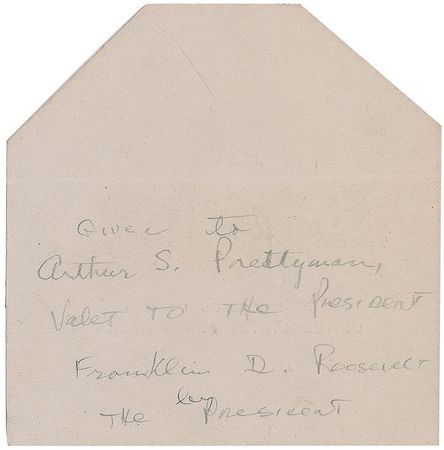 Given to
Arthur S. Prettyman,
Valet TO THE President
Franklin D. Roosevelt
by
THE President